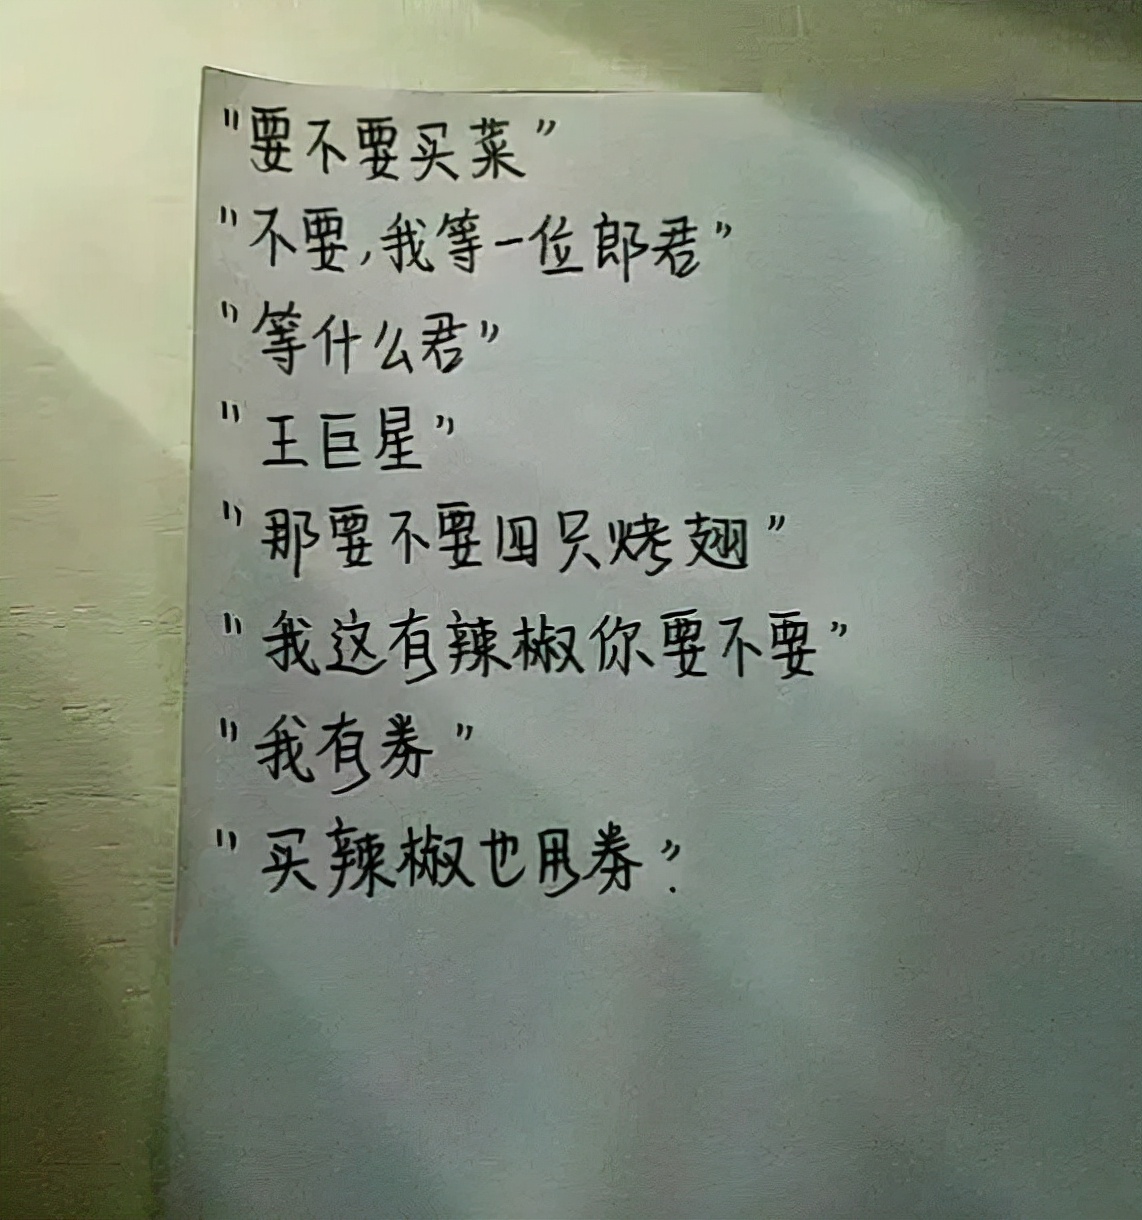 "要不要买菜"
"不要,我等一位郎君"
"等什么君"
"王巨星"
"那要不要四只烤翅"
"我这有辣椒你要不要"
"我有券"
"买辣椒也用券"?